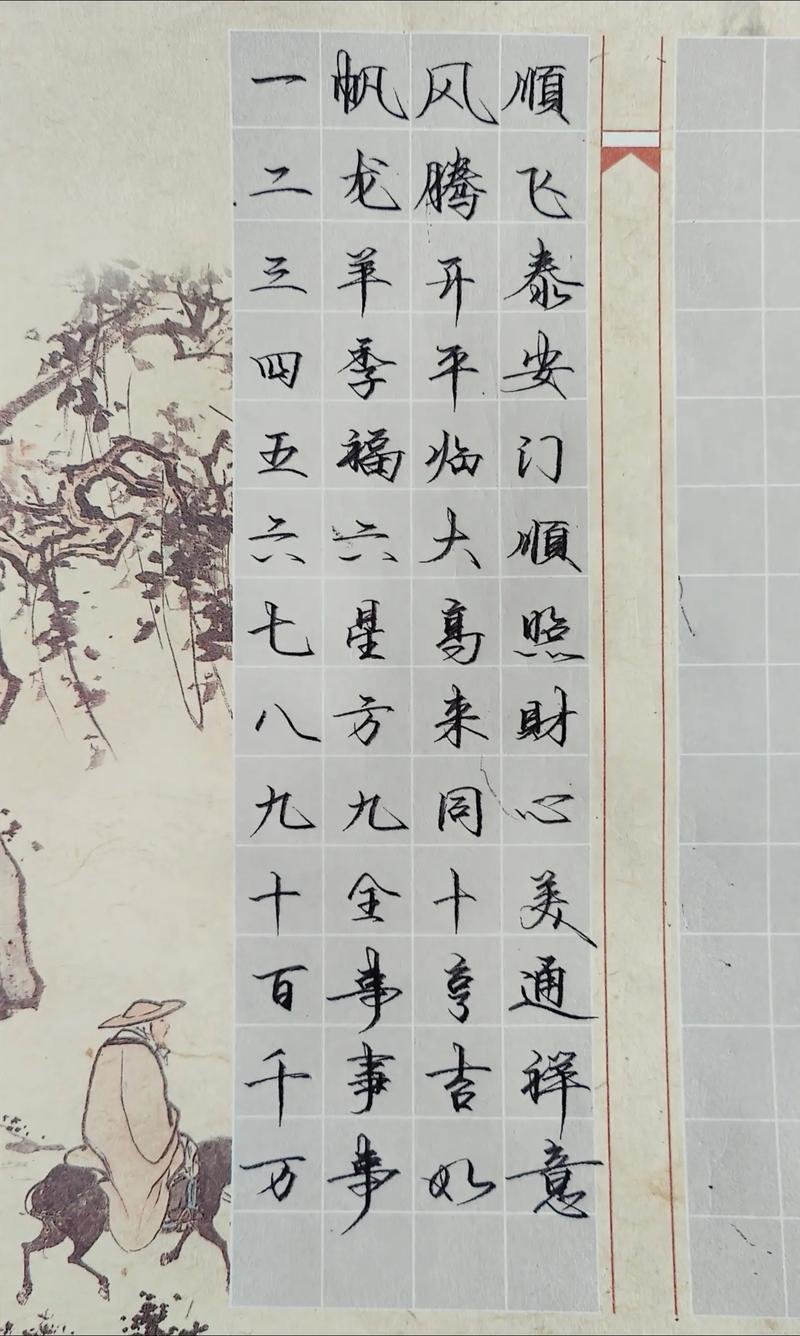 一帆风順
二龙腾飞
三羊开泰
四季平安
五福临门
六六大順
七星高照
八方来財
九九同心
十全十美
百事亨通
千事吉祥
万事如意